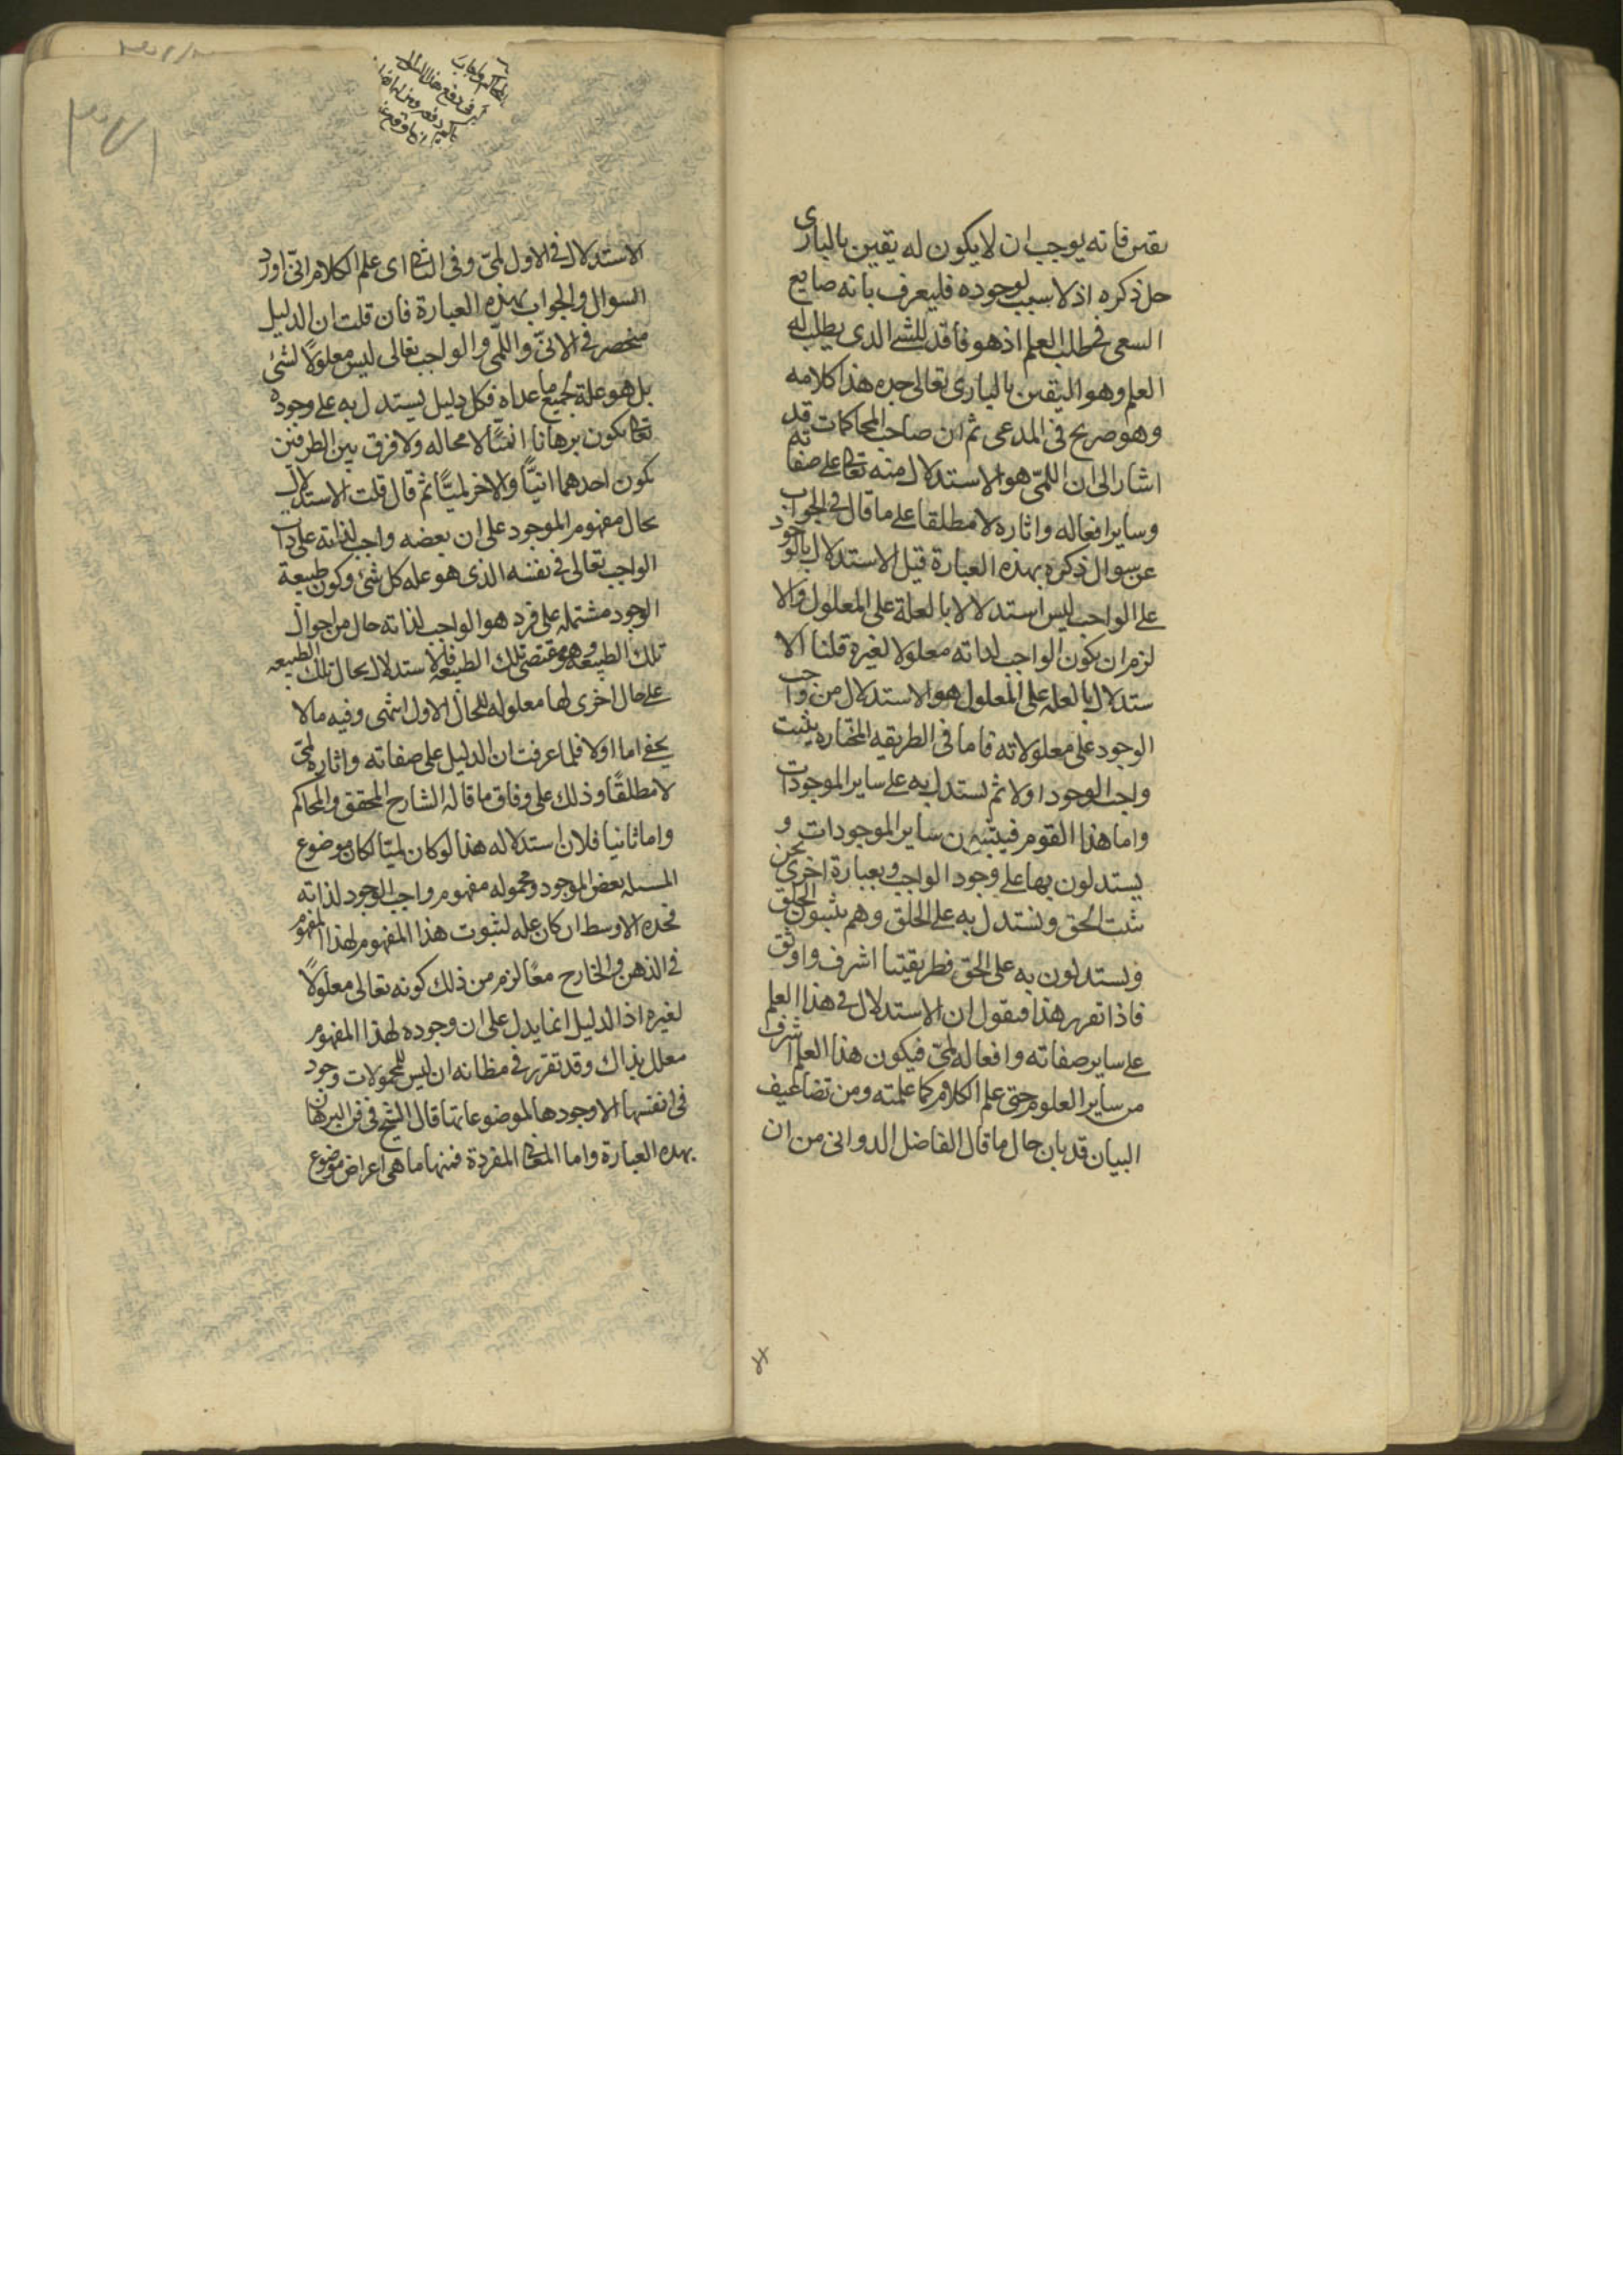 یقین فانه یوجب ان لا یکون له یقین بالباری
جل ذکره اذ لا سبب لوجوده فلیعرف بانه ضایع
السعی فی طلب العلم اذ هو فاقد للشئ الذی یطلب له
العلم وهو الیقین بالباری تعالی جده هذا کلامه
وهو صریح فی المدعی ثم ان صاحب المحاکمات قد
اشار الی ان اللمّی هو الاستدلال منه تعالی علی صفاته
وسایر افعاله واثاره لا مطلقا علی ما قال فی الجواب
عن سوال ذکره بهذه العبارة قیل الاستدلال بالوجود
علی الواجب لیس استدلالا بالعلة علی المعلول والا
لزم ان یکون الواجب لذاته معلولا لغیره قلنا الا
ستدلال بالعله علی المعلول هو الاستدلال من واجب
الوجود علی معلولاته فاما فی الطریقه المختاره یثبت
واجب الوجود اولا ثم یستدل به علی سایر الموجودات
واما هذا القوم فیثبتون سایر الموجودات و
یستدلون بها علی وجود الواجب وبعبارة اخری نحن
نثبت الحق ونستدل به علی الخلق وهم یثبتون الخلق
ویستدلون به علی الحق فطریقتنا اشرف واوثق
فاذا تقرر هذا فنقول ان الاستدلال فی هذا العلم
علی سایر صفاته وافعاله لمیّ فیکون هذا العلم اشرف
من سایر العلوم حتی علم الکلام کما علمته ومن تضاعیف
البیان قد بان حال ما قال الفاضل الدوانی من ان
الاستدلال فی الاول لمیّ وفی الثانی ای علم الکلام انیّ اورد
السوال والجواب بهذه العبارة فان قلت ان الدلیل
منحصر فی الانیّ واللمّی والواجب تعالی لیس معلولًا لشئ
بل هو علة لجمیع ما عداه فکل دلیل یستدل به علی وجوده
تعالی یکون برهانا انیًّا لا محاله ولا فرق بین الطرفین
یکون احدهما انیًّا والاخر لمیًّا ثم قال قلت الاستدلال
بحال مفهوم الموجود علی ان بعضه واجب لذاته علی ذات
الواجب تعالی فی نفسه الذی هو علة کل شئ وکون طبیعة
الوجود مشتمله علی فرد هو الواجب لذاته حال من احوال
تلک الطبیعه وهو مقتضی تلک الطبیعه فالاستدلال بحال تلک الطبیعه
علی حال اخری لها معلوله للحال الاول انتهی وفیه ما لا
یخفی اما اولا فلما عرفت ان الدلیل علی صفاته واثاره لمیّ
لا مطلقًا وذلک علی وفاق ما قاله الشارح المحقق والمحاکم
واما ثانیا فلان استدلاله هذا لو کان لمیّا لکان موضوع
المسئله بعض الموجود ومحموله مفهوم واجب الوجود لذاته
فحده الاوسط ان کان علة لثبوت هذا المفهوم لهذا المفهوم
فی الذهن والخارج معًا لزم من ذلک کونه تعالی معلولًا
لغیره اذ الدلیل انما یدل علی ان وجوده لهذا المفهوم
معلل بذاک وقد تقرر فی مظانه ان لیس للمحمولات وجود
فی انفسها الا وجودها لموضوعاتها قال الشیخ فی فن البرهان
بهذه العبارة واما المعانی المفردة فمنها ما هی اعراض موضوع